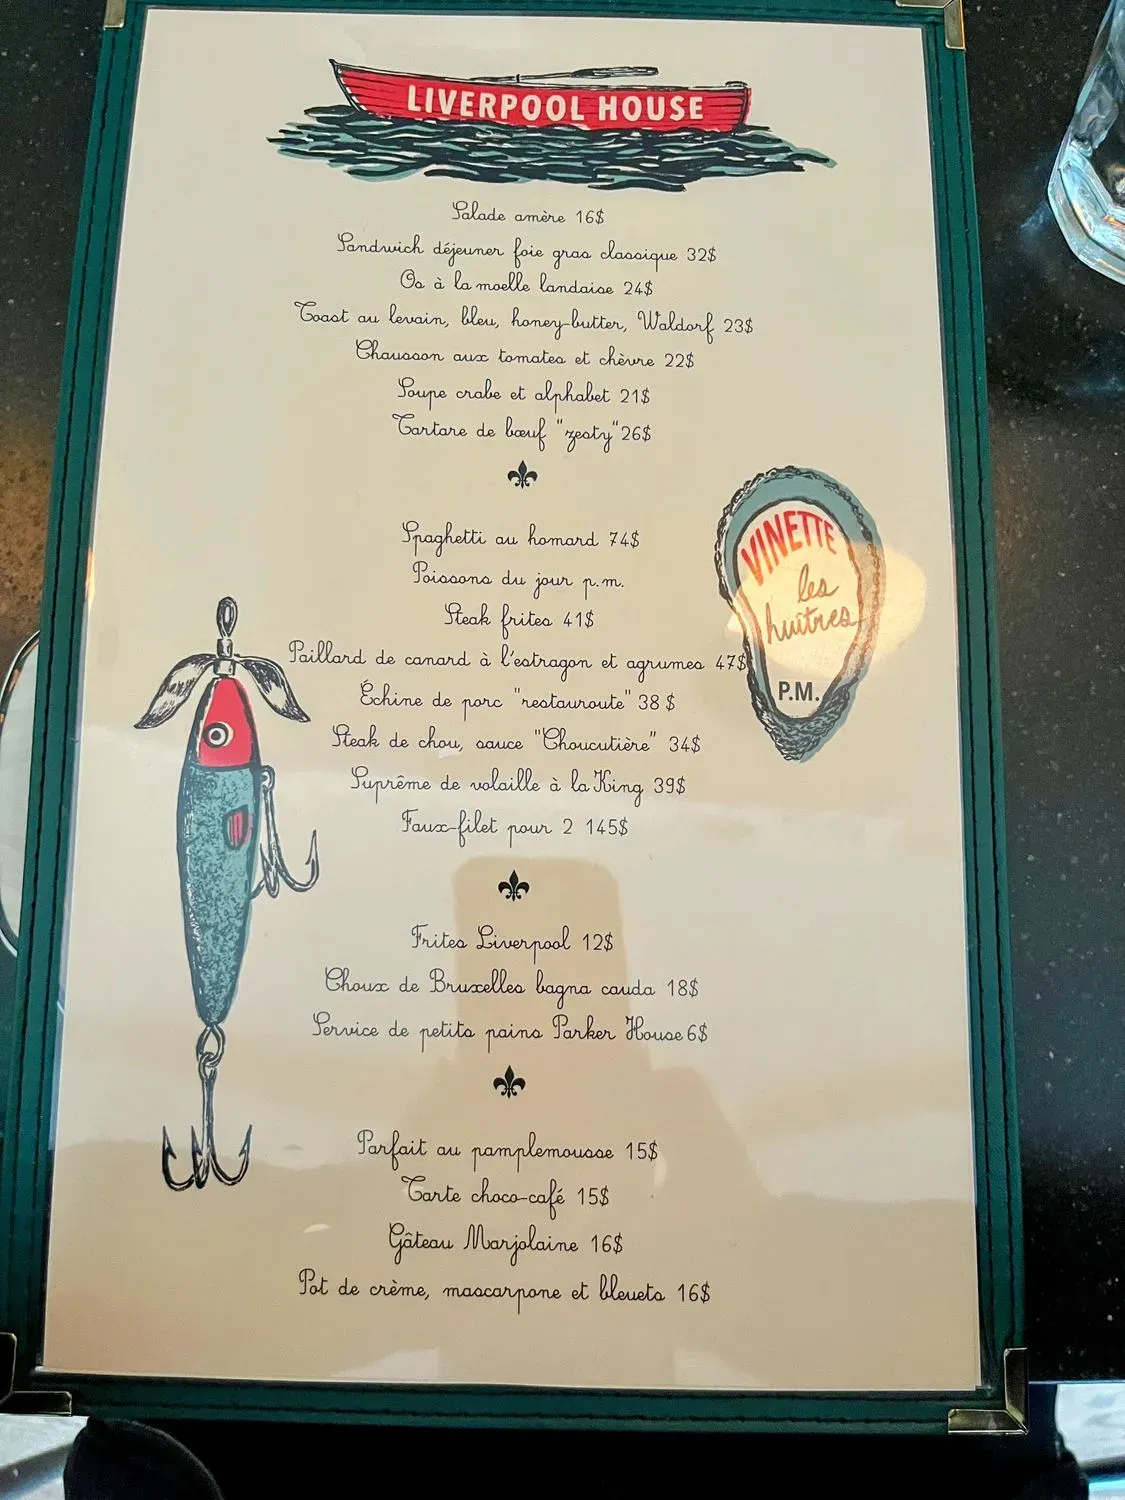 LIVERPOOL HOUSE
Salade amère 16$
Sandwich déjeuner foie gras classique 32$
Os à la moelle landaise 24$
Toast au levain, bleu, honey-butter, Waldorf 23$
Chausson aux tomates et chèvre 22$
Soupe crabe et alphabet 21$
Tartare de bœuf "zesty" 26$
Spaghetti au homard 74$
Poissons du jour p.m.
Steak frites 41$
Paillard de canard à l'estragon et agrumes 47$
Échine de porc "restauroute" 38 $
Steak de chou, sauce "Choucutière" 34$
Suprême de volaille à la King 39$
Faux-filet pour 2 145$
VINETTE
les
huîtres
P.M.
Frites Liverpool 12$
Choux de Bruxelles bagna cauda 18$
Service de petits pains Parker House 6$
Parfait au pamplemousse 15$
Tarte choco-café 15$
Gâteau Marjolaine 16$
Pot de crème, mascarpone et bleuets 16$